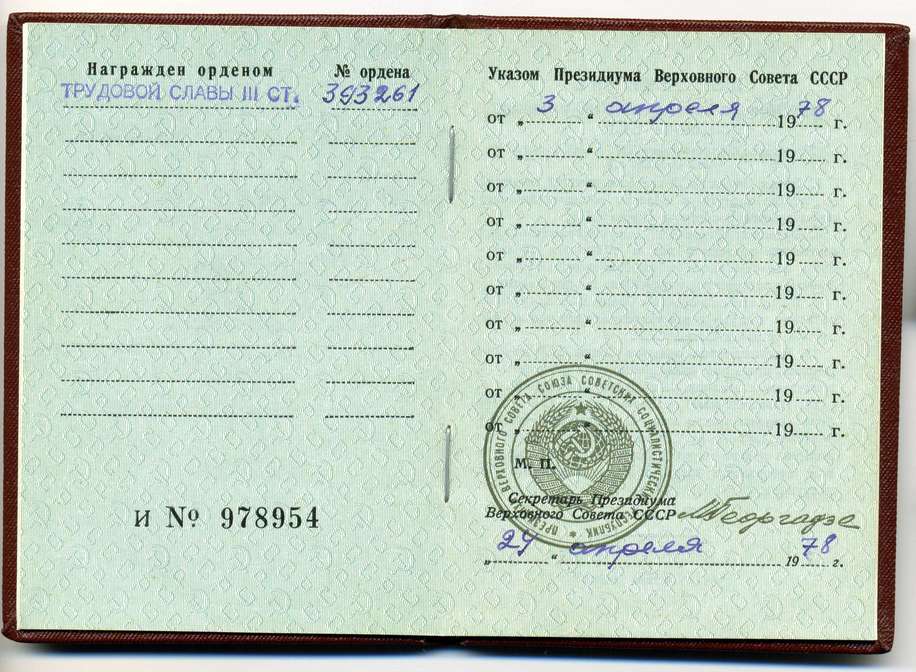 Награжден орденом
№ ордена
ТРУДОВОЙ СЛАВЫ III СТ.
393261
И № 978954
Указом Президиума Верховного Совета СССР
от „ 3 “ апреля 1978 г.
от „ “ 19 г.
от „ “ 19 г.
от „ “ 19 г.
от „ “ 19 г.
от „ “ 19 г.
от „ “ 19 г.
от „ “ 19 г.
от „ “ 19 г.
от „ “ 19 г.
ПРЕЗИДИУМ ВЕРХОВНОГО СОВЕТА СОЮЗА СОВЕТСКИХ СОЦИАЛИСТИЧЕСКИХ РЕСПУБЛИК
М. П.
Секретарь Президиума
Верховного Совета СССР МГеоргадзе
„ 24 “ апреля 1978 г.